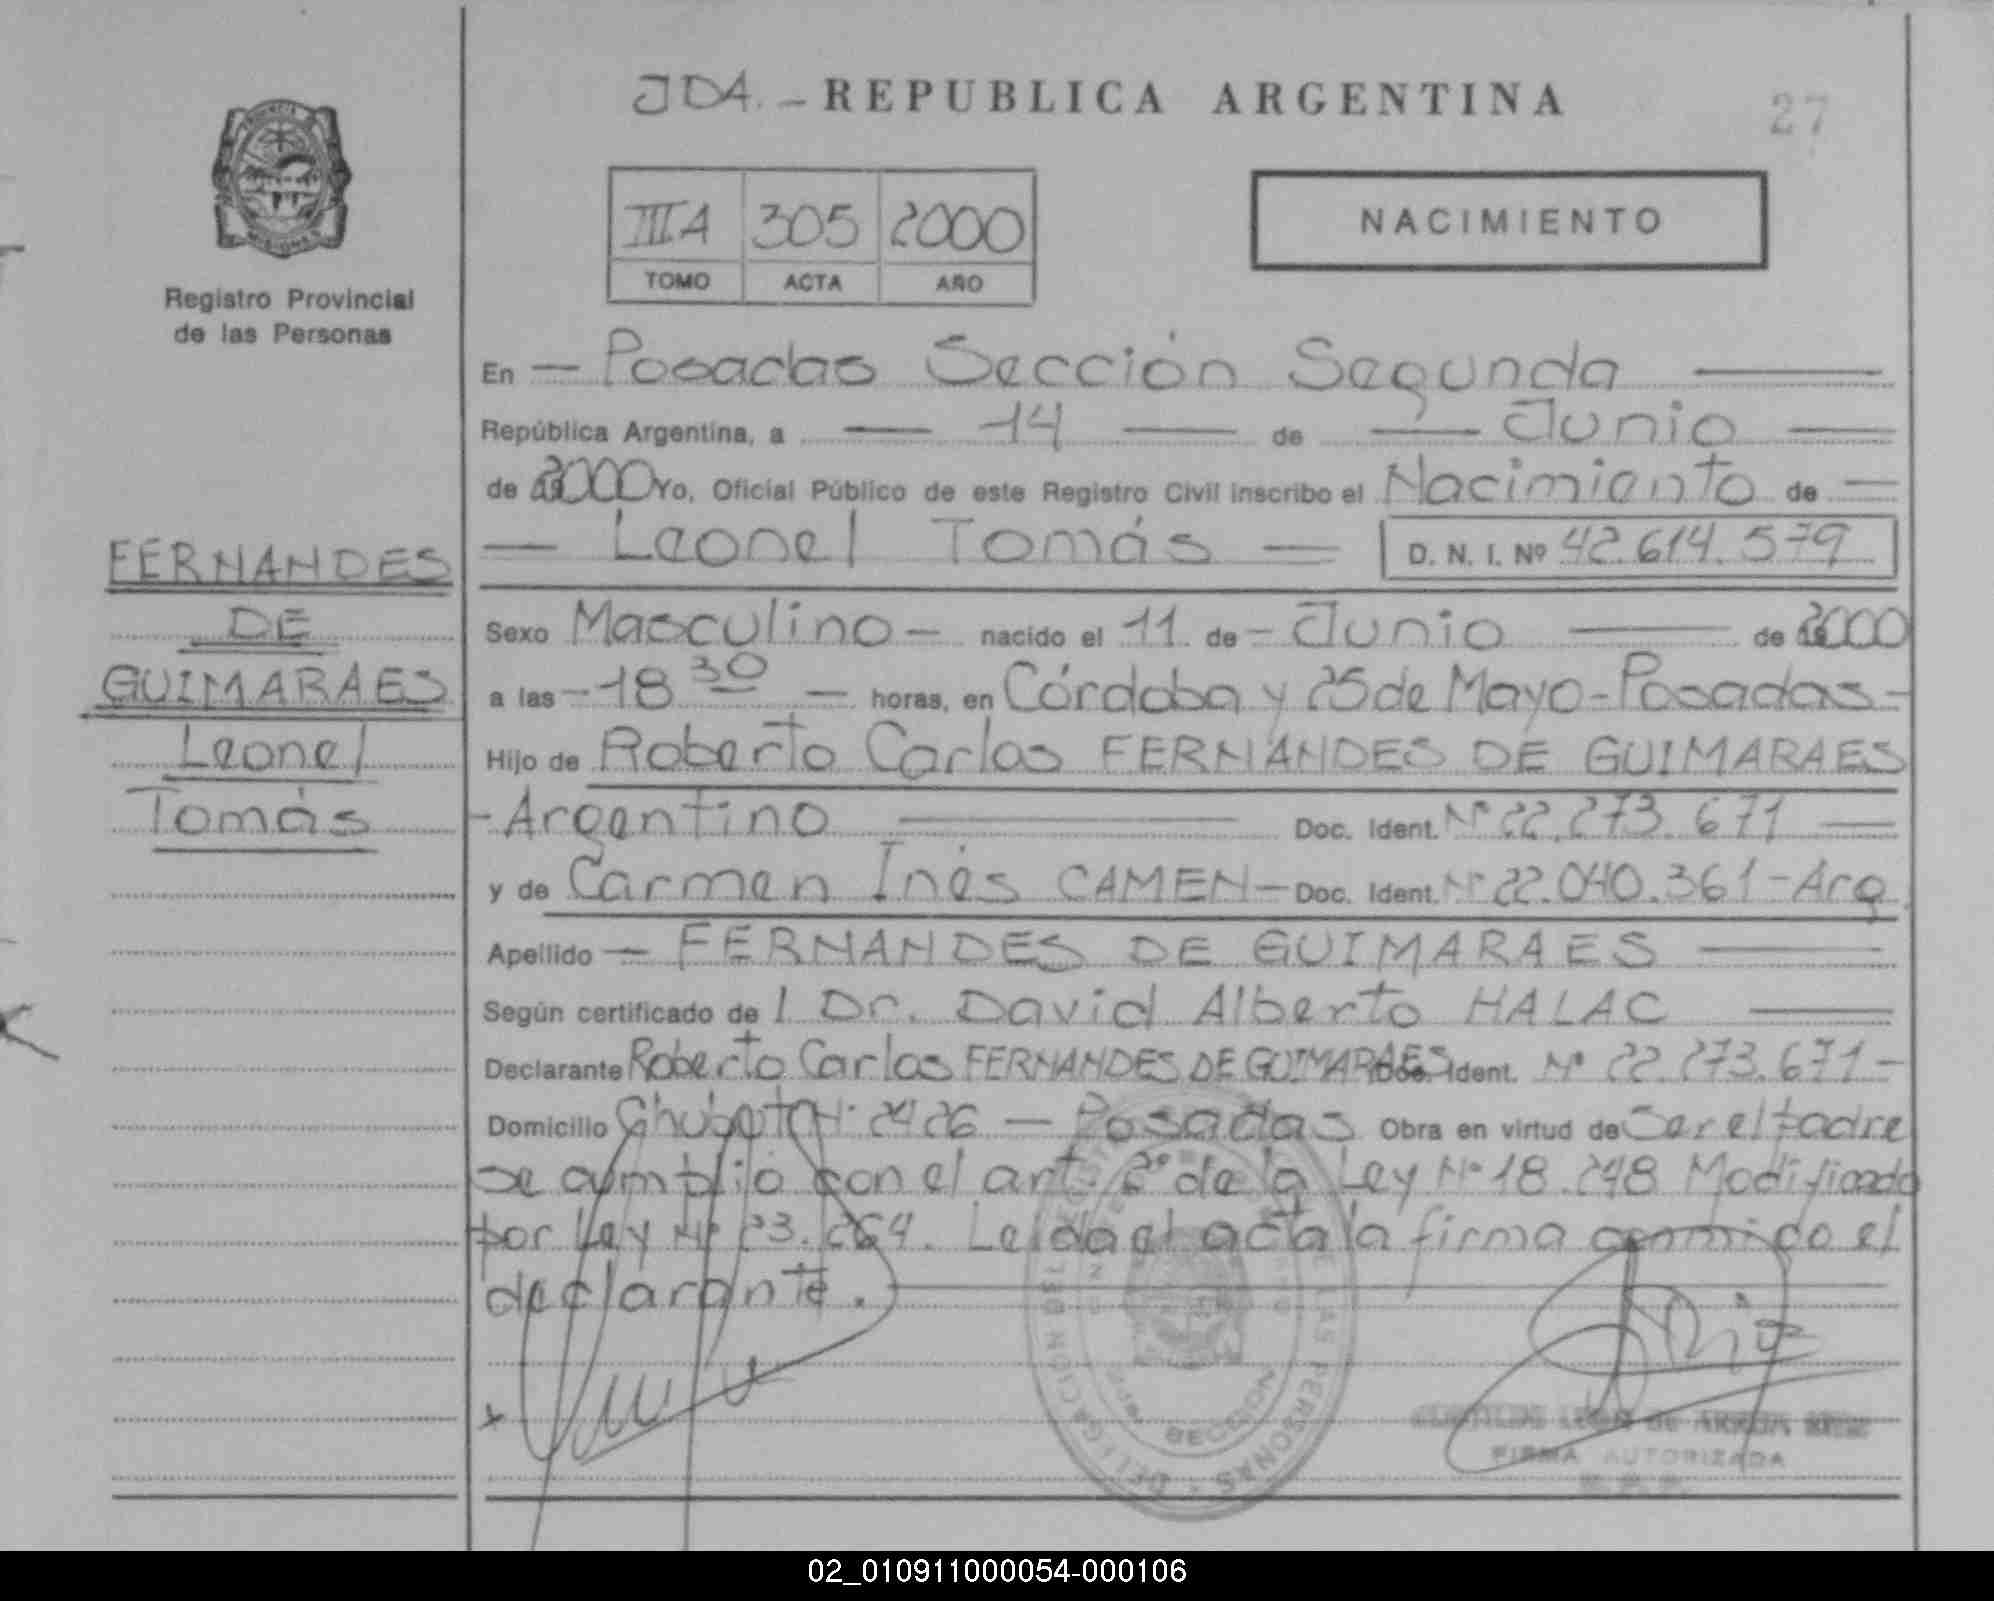 JDA. - REPUBLICA ARGENTINA
27
PROVINCIA DE MISIONES
Registro Provincial
de las Personas
III A 305 2000
TOMO ACTA AÑO
NACIMIENTO
En — Posadas Sección Segunda —
República Argentina, a — 14 — de — Junio —
de 2000 Yo, Oficial Público de este Registro Civil inscribo el Nacimiento de —
— Leonel Tomás — D. N. I. Nº 42.614.579
FERNANDES
DE
GUIMARAES
Leonel
Tomás
Sexo Masculino — nacido el 11 de — Junio — de 2000
a las — 18 30 — horas, en Córdoba y 25 de Mayo - Posadas -
Hijo de Roberto Carlos FERNANDES DE GUIMARAES
- Argentino — Doc. Ident. Nº 22.273.671 —
y de Carmen Inés CAMEN — Doc. Ident. Nº 22.040.361 - Arg.
Apellido — FERNANDES DE GUIMARAES —
Según certificado de l Dr. David Alberto HALAC —
Declarante Roberto Carlos FERNANDES DE GUIMARAES Doc. Ident. Nº 22.273.671 -
Domicilio Chubut Nº 2426 — Posadas Obra en virtud de Ser el padre
se cumplió con el art. 2º de la Ley Nº 18.248 Modificado
por Ley Nº 23.264. Leída el acta la firma conmigo el
declarante.
DELEGACION DEL REGISTRO DE LAS PERSONAS
SECCION
FIRMA AUTORIZADA
02_010911000054-000106